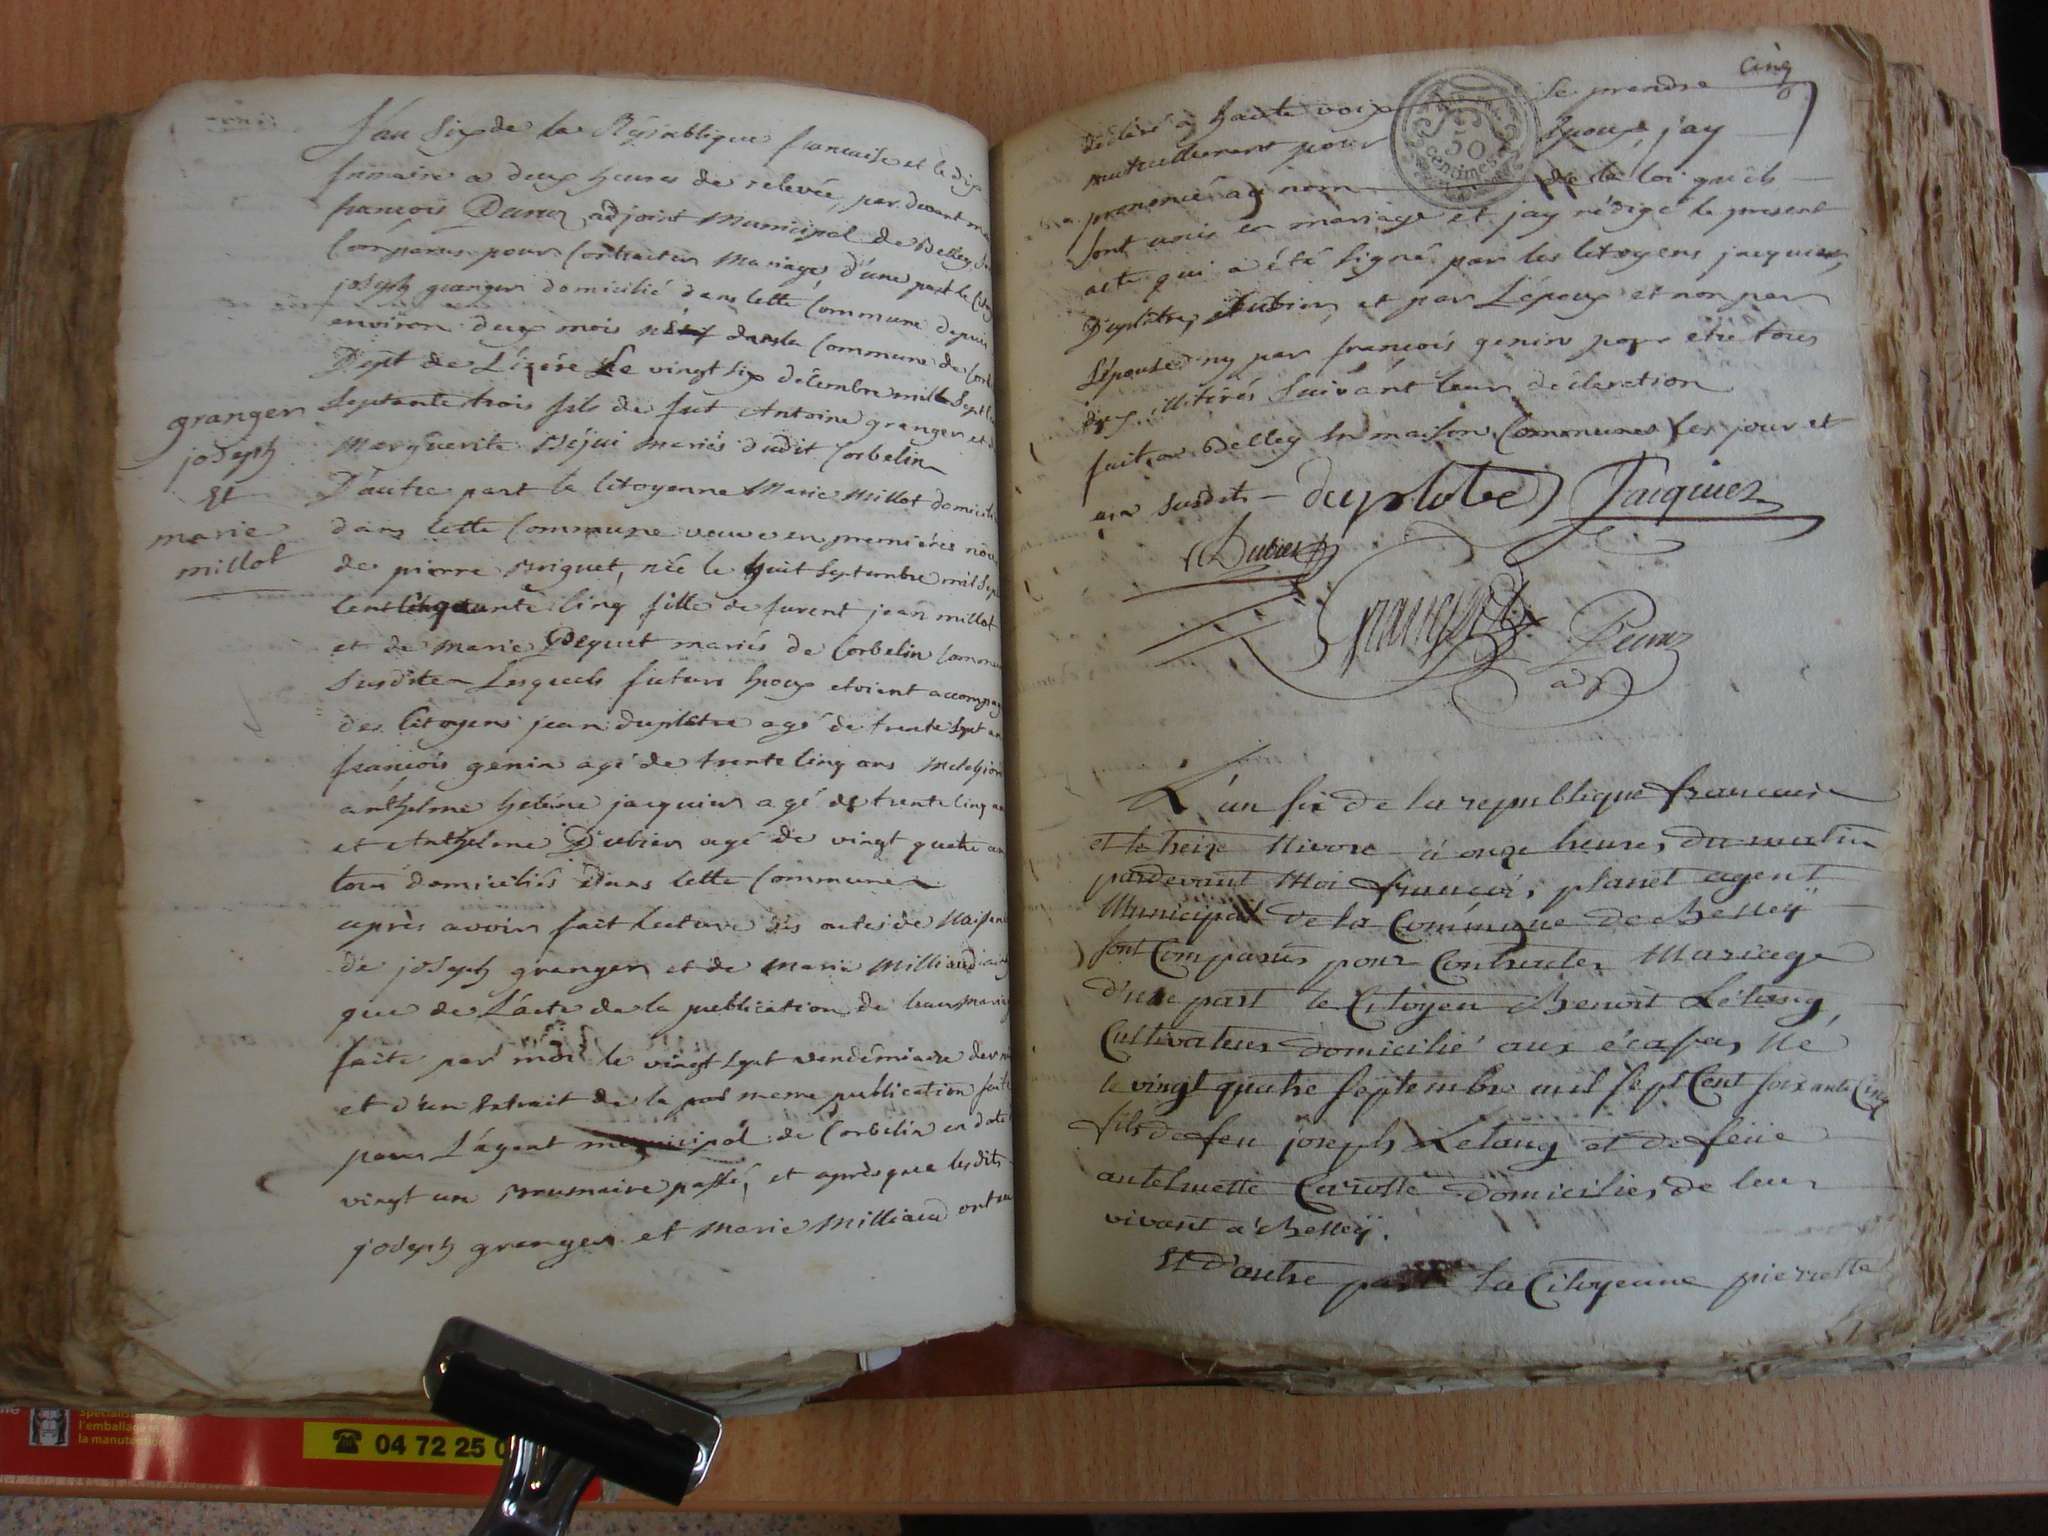 L'an Six de la République francaise et le dix
frimaire a deux heures de relevée, par devant
françois adjoint Municipal de Belley
Comparus pour Contracter Mariage, d'une part le
joseph granger domicilié dans cette Commune depuis
environ deux mois né dans la Commune de
Dept de L'izére Le vingt six décembre mille Sept
Septante trois fils de fut Antoine granger et
Marguerite mariés dudit Corbelin
D'autre part la Citoyenne Marie Millot
dans cette Commune veuve en premières
de pierre née le huit Septembre mil Sept
Cent Cinquante Cinq fille de furent jean millot
et de Marie mariés de Corbelin
Susdite Lesquels futurs Epoux etoient
des Citoyens jean duplatre agé de trente Sept
françois genin agé de trente Cinq ans Melchior
anthelme heléne jacquier agé de trente Cinq
et Anthelme Dubier agé de vingt quatre
tous domiciliés dans Cette Commune
après avoir fait lecture des actes de
de joseph granger et de Marie
que de L'acte de la publication de leur
faite par moi le vingt Sept vendémiaire
et d'un Extrait de la meme publication faite
par L'agent municipal de Corbelin en date
vingt un Brumaire passé, et après que lesdits
joseph granger et Marie Milliand ont
granger
joseph
Et
marie
millot
Cinq
déclaré a haute voix Se prendre
mutuellement pour Epoux, jay
prononcé au nom de la loi quils
Sont unis en mariage et jay rédigé le present
acte qui a été Signé par les Citoyens jacquier,
Duplatre, Dubier, et par L'époux et non par
L'épouse ny par françois genin pour etre tous
illitérés Suivant leur déclaration
fait a Belley En maison Commune Les jour et
an Susdits duplatre Jacquier
Dubier
50
centimes
L'an six de la republique francaise
et le treize Nivose à onze heures du matin
pardevant Moi françois, planet agent
Municipal de la Commune de Belleÿ
sont Comparus pour Contracter Mariage
d'une part le Citoyen Benoit Létang,
Cultivateur domicilié aux écasas, Né
le vingt quatre Septembre mil Sept Cent soixante Cinq
fils de feu joseph Létang et de feüe
antelmette domiciliés de leur
vivant à Belleÿ.
Et D'autre part la Citoyenne pierrette
Spécialiste
l'emballage et
la manutention
☎ 04 72 25 0